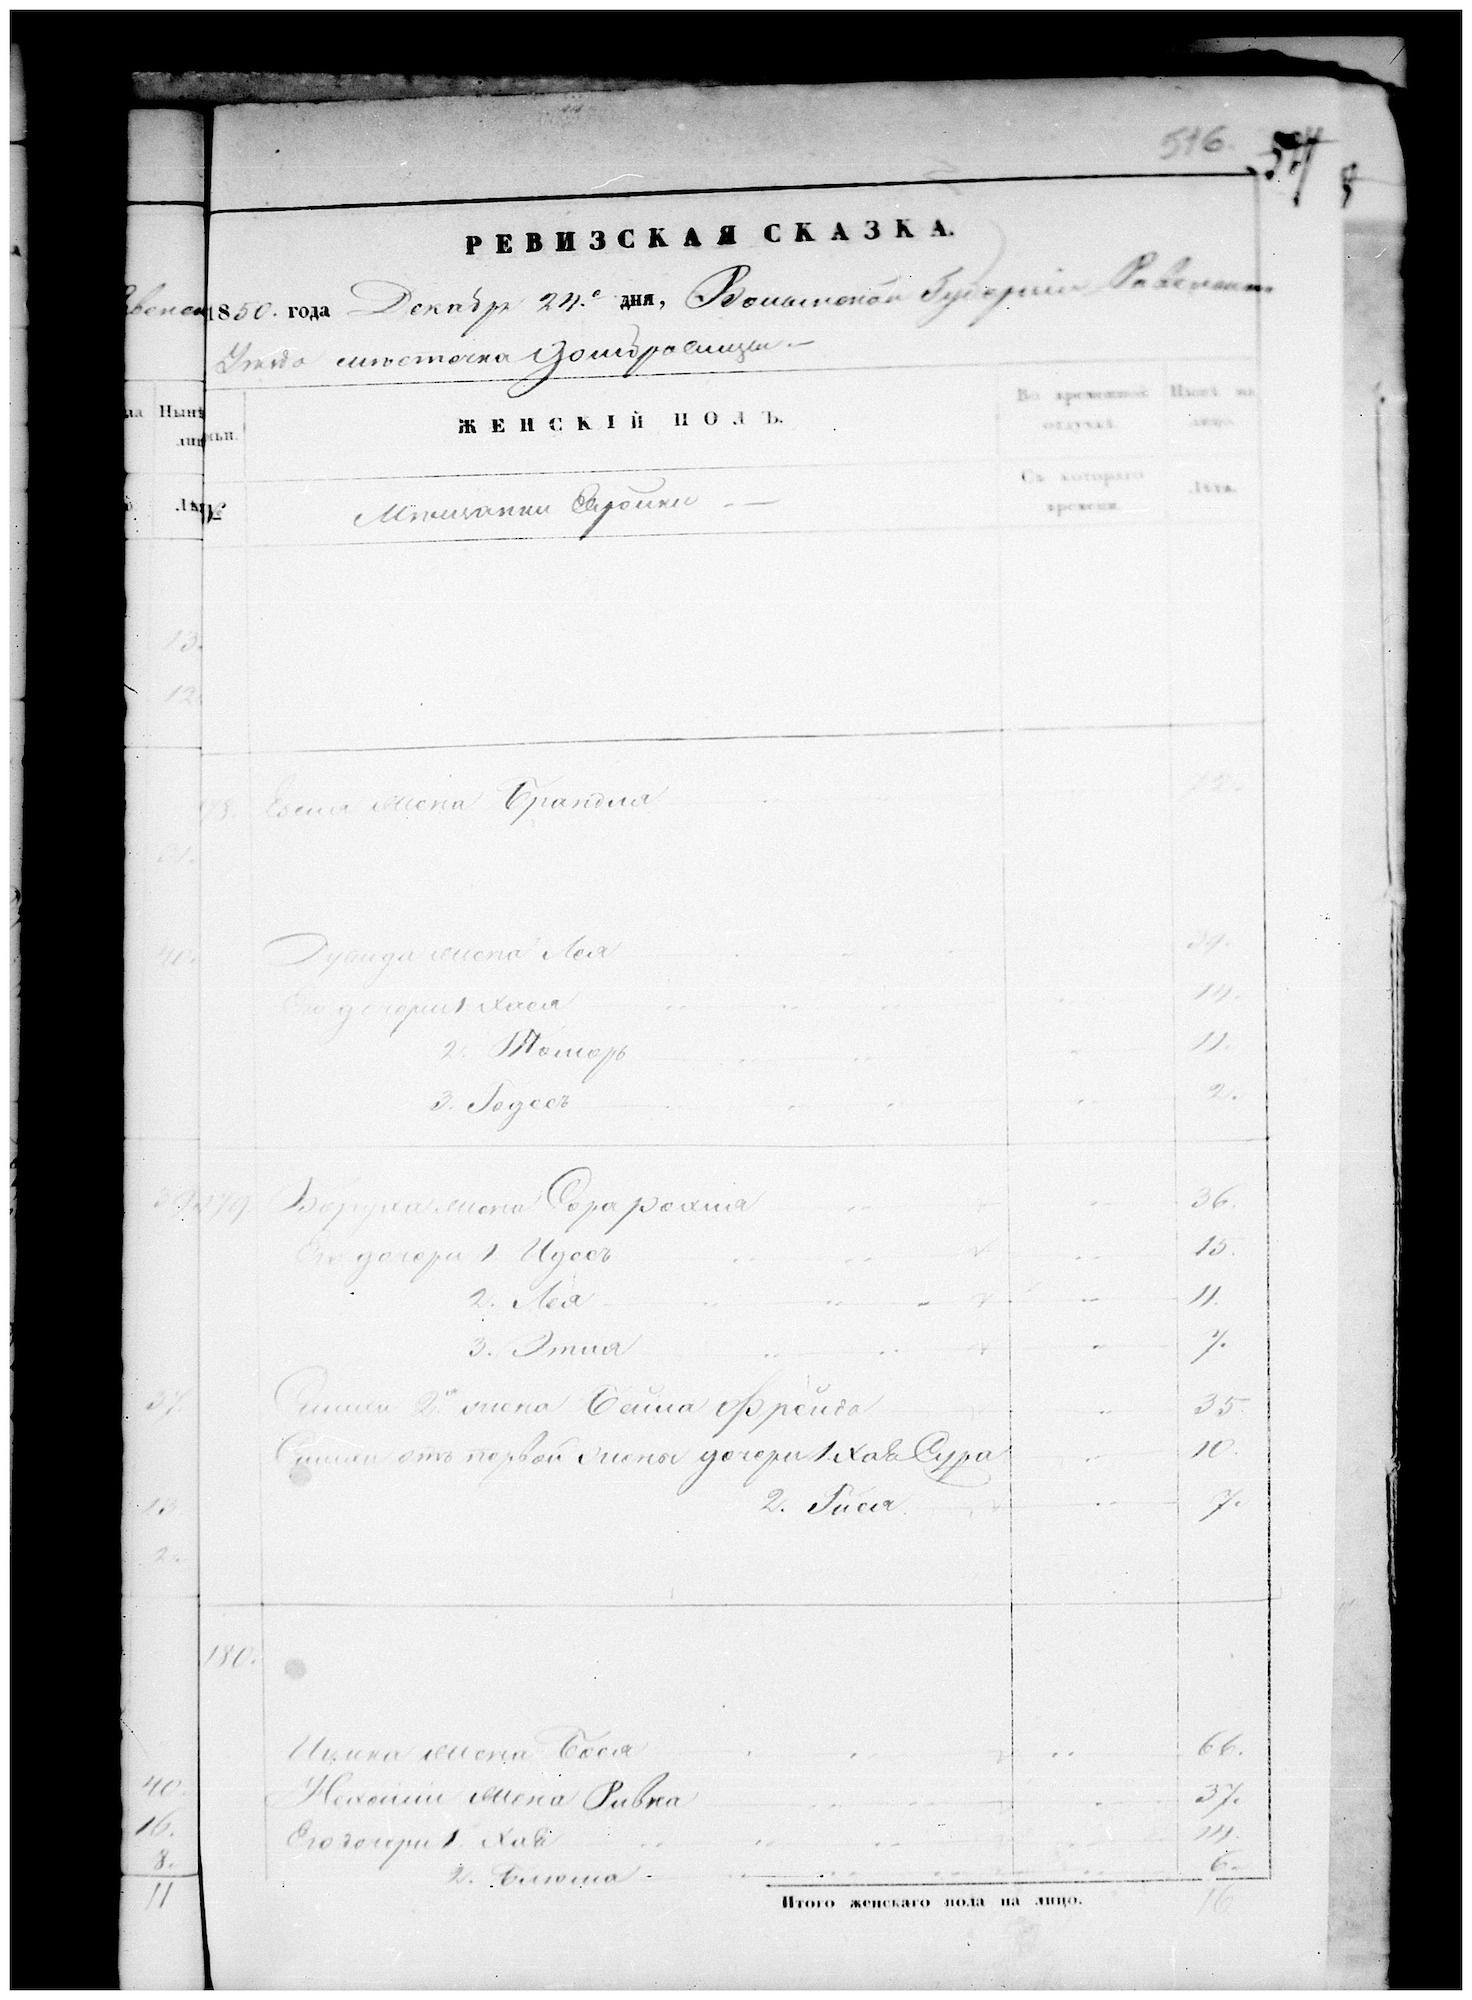 516.
РЕВИЗСКАЯ СКАЗКА.
1850. года Декабр 24.го дня, Волынской Губернии Ровенскаго
Уезда местечка Домбровицы
ЖЕНСКІЙ ПОЛЪ.
Во временной отлучкѣ.
Нынѣ на лицо.
№
Мещанки Евреики
Съ котораго времени.
Лѣта.
13.
12.
178. жена Брандля
31.
40. Дувида жена Лея 39.
Его дочери 1. Хася 14.
2. Томоръ 11.
3. Годесъ 2.
39. 179. Боруха жена Сора рохля 36.
Его дочери 1. Идесъ 15.
2. Лея 11.
3. Этля 7.
37. 2я жена Бейла Фрейда 35.
отъ первой жены дочери 1. Хая Сура 10.
13. 2. Гися 7.
2.
180.
Ицка жена Бася 66.
40. жена Ривка 37.
16. Его дочери 1. Хая 14.
8. 2. Блюма 6.
11 Итого женскаго пола на лицо. 16